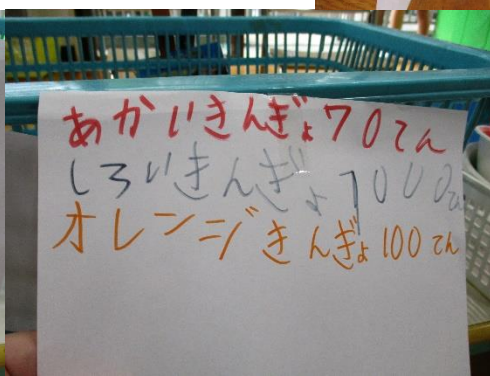 あかいきんぎょ70てん
しろいきんぎょ1000てん
オレンジきんぎょ100てん